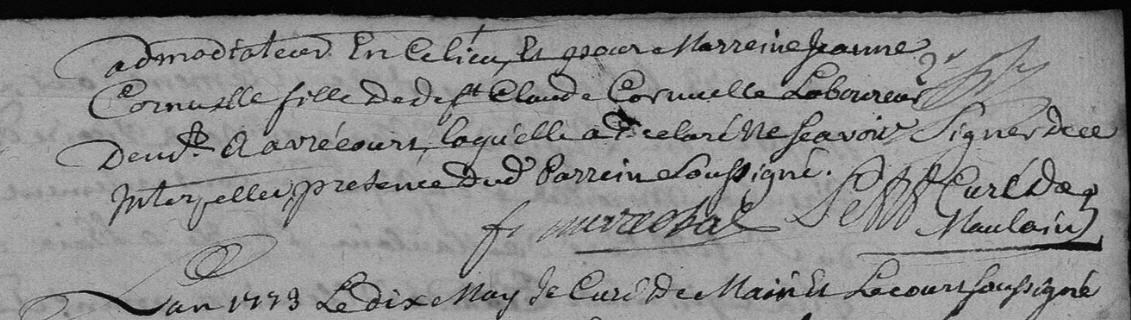 admodiateur En Ce lieu, Et pour Marreine Jeanne
Cornuelle fille de deft Claude Cornuelle Laboureur
demt A avrécourt, laquelle a declaré Ne Scavoir Signer dece
Interpellée, presence dud Parrein Soussigné.
f marechal Curé de
Maulain
Lan 1773 Le dix May Je Curé De Main Et Lecourt soussigné